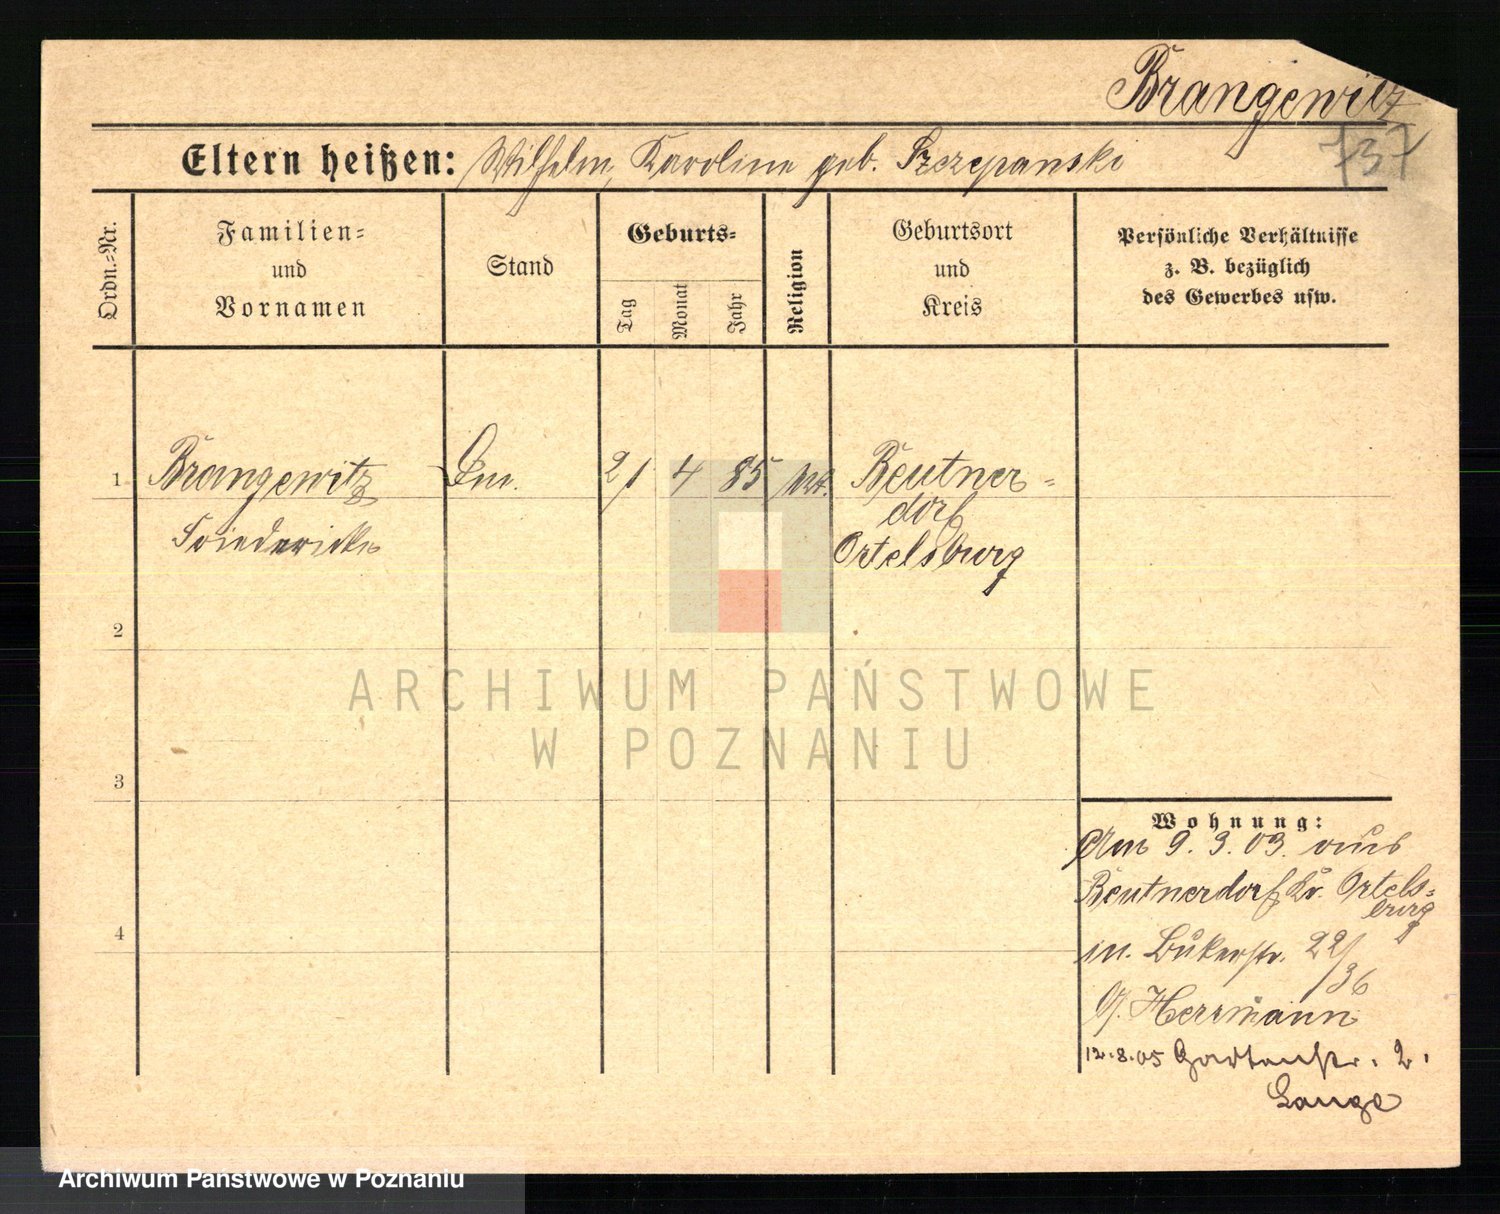 Brangewitz
737
Eltern heißen: Wilhelm, Karoline geb. Szczepanski
Ordn.-Nr.
Familien-
und
Vornamen
Stand
Geburts-
Tag
Monat
Jahr
Religion
Geburtsort
und
Kreis
Persönliche Verhältnisse
z. B. bezüglich
des Gewerbes usw.
1
Brangewitz
Friedericke
21 4 85
Beutner-
dorf
Ortelsburg
2
3
4
ARCHIWUM PAŃSTWOWE
W POZNANIU
Wohnung:
Am 9. 3. 03. aus
Beutnerdorf Kr. Ortels-
burg
in. Bükerstr. 22/
36
b/. Herrmann
12.8.05 Gartenstr. 2.
Lange
Archiwum Państwowe w Poznaniu